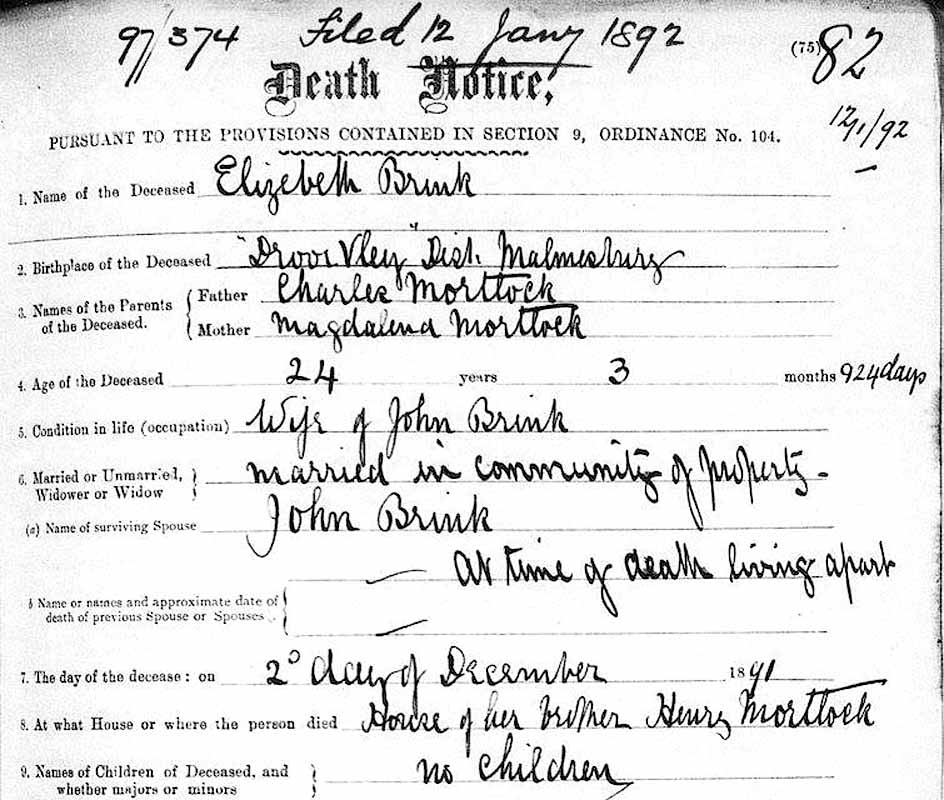 97/374 Filed 12 Jany 1892 (75) 82
Death Notice,
12/1/92
PURSUANT TO THE PROVISIONS CONTAINED IN SECTION 9, ORDINANCE No. 104.
1. Name of the Deceased Elizebeth Brink
2. Birthplace of the Deceased "Drooi Vley" Dist. Malmesbury
3. Names of the Parents of the Deceased. { Father Charles Morttock
{ Mother Magdalena Morttock
4. Age of the Deceased 24 years 3 months 924days
5. Condition in life (occupation) Wife of John Brink
6. Married or Unmarried, Widower or Widow } married in community of property -
(a) Name of surviving Spouse John Brink
At time of death living apart
b Name or names and approximate date of death of previous Spouse or Spouses. {
7. The day of the decease: on 2° day of December 1891
8. At what House or where the person died House of her brother Henry Morttock
9. Names of Children of Deceased, and whether majors or minors } no children